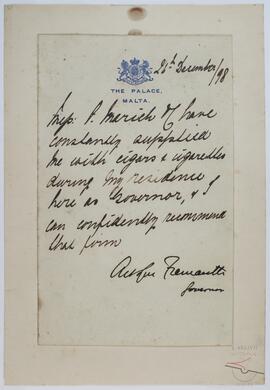 26th December/98
THE PALACE,
MALTA.
Messrs P. Marich & Co have
constantly supplied
me with cigars & cigarettes
during my residence
here as Governor, & I
can confidently recommend
that firm
Arthur Fremantle
Governor